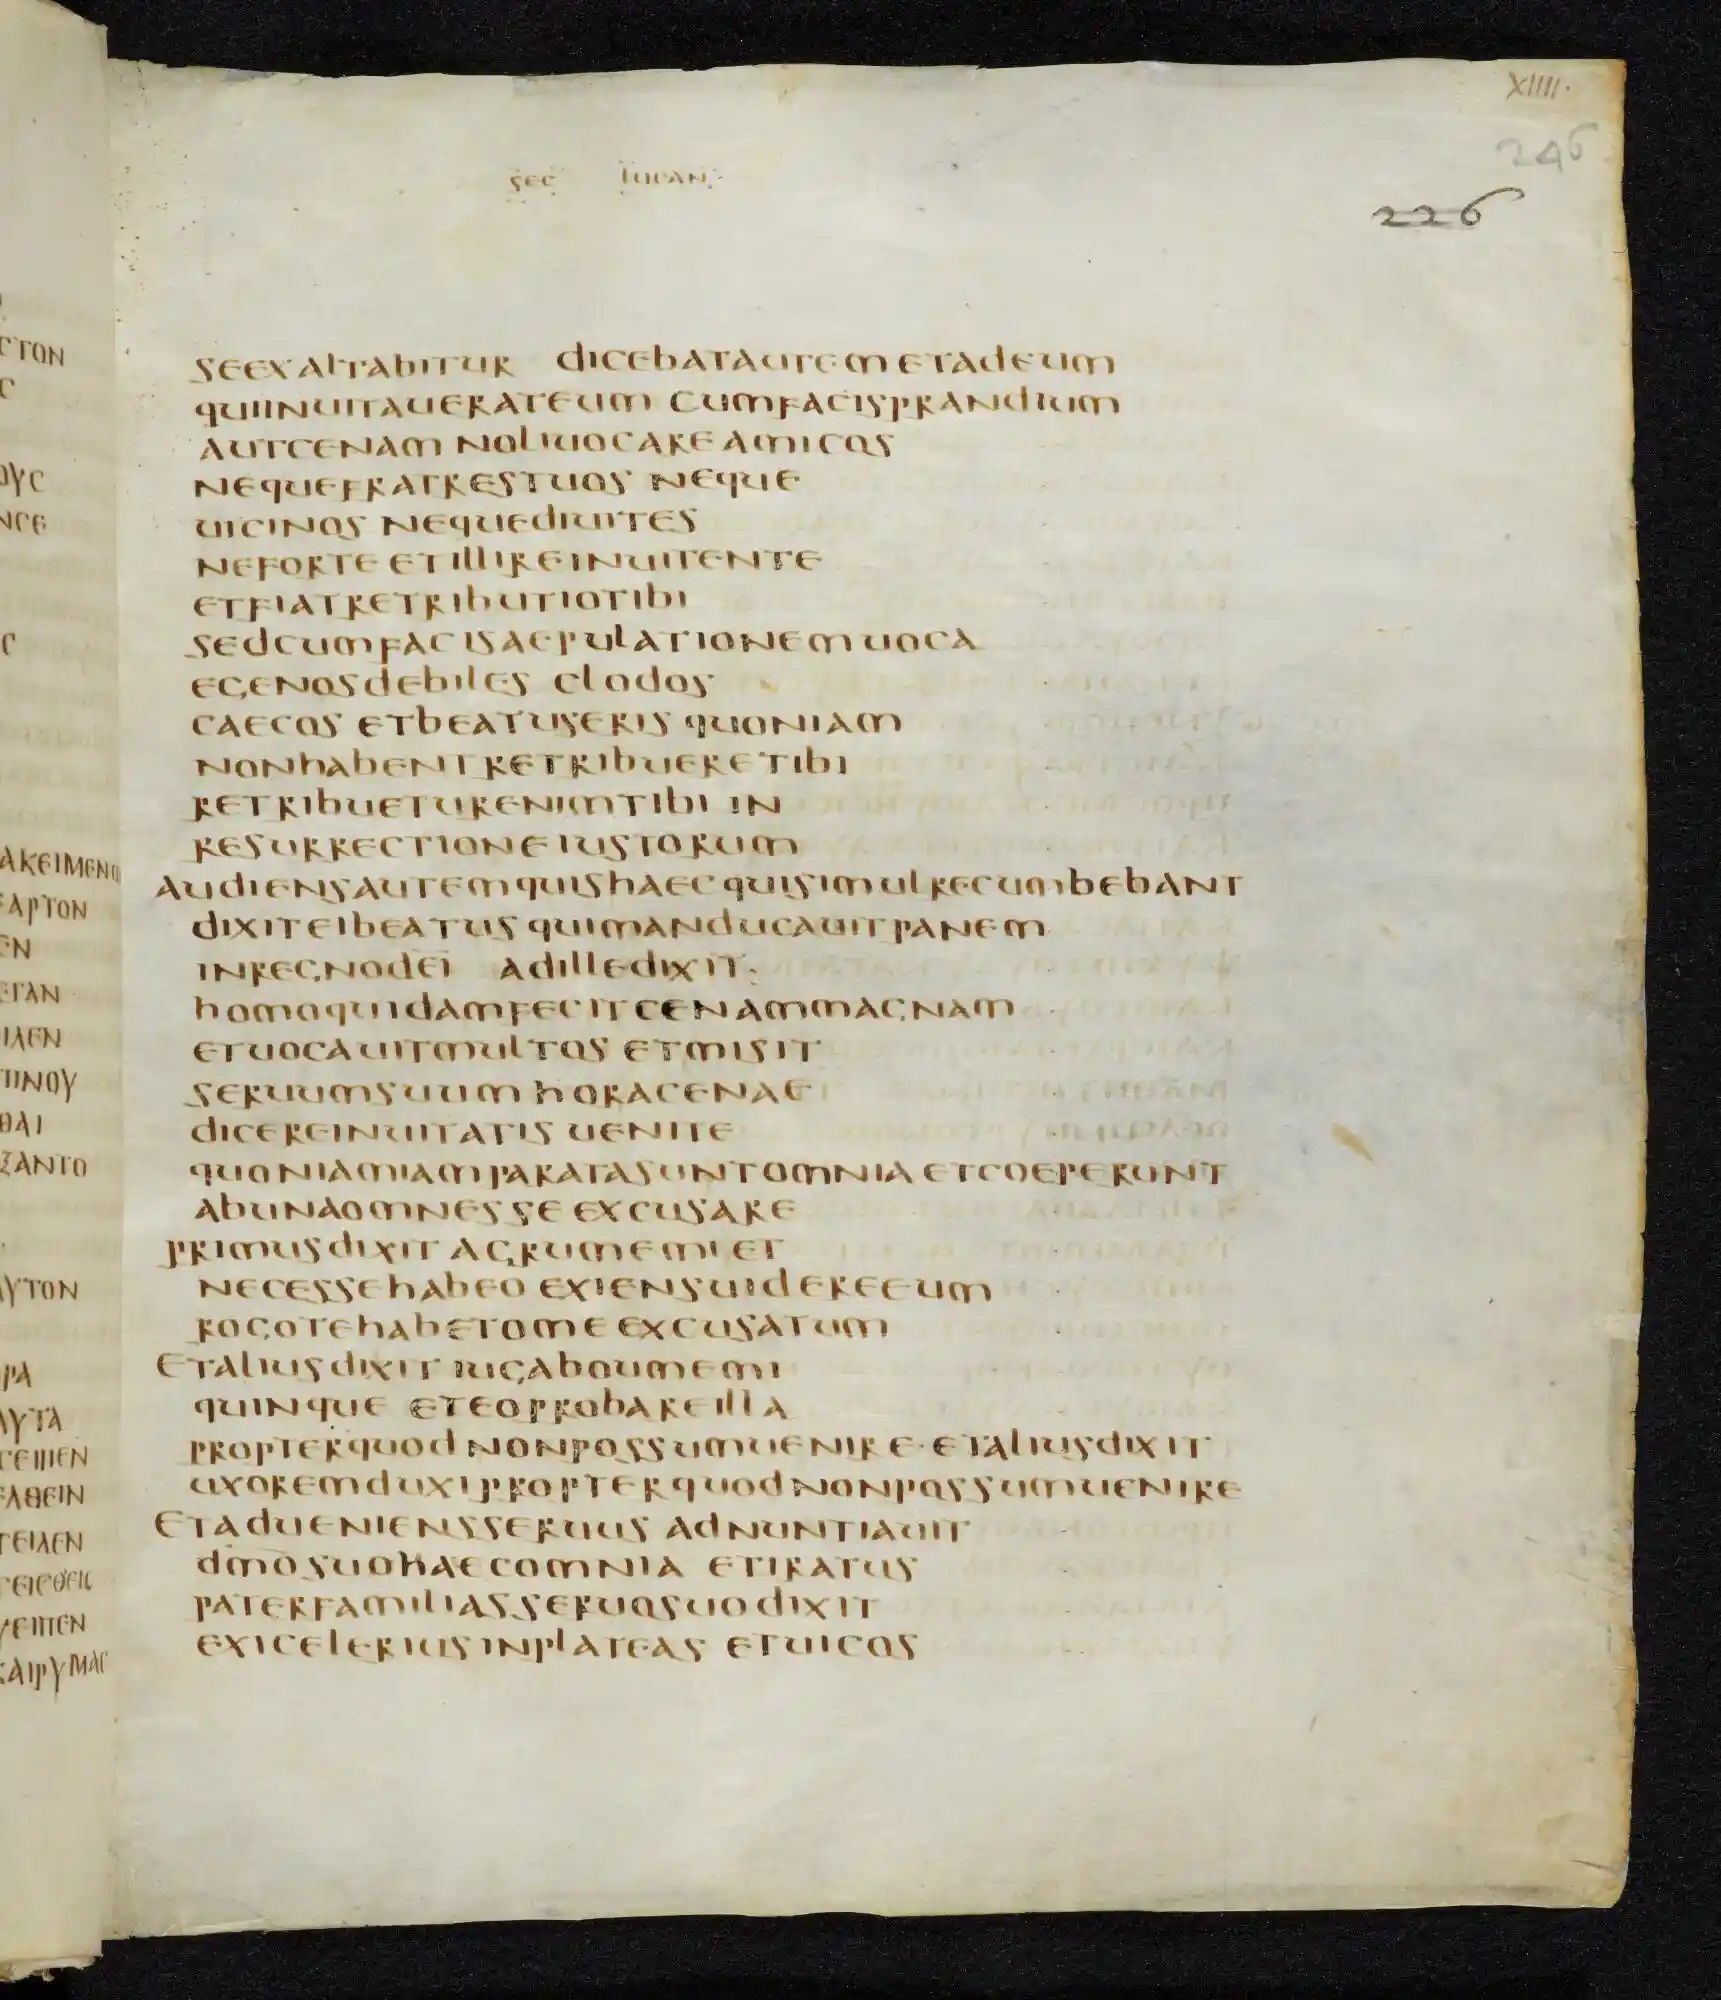 XIIII·
246
226
sec lucan
seexaltabitur dicebatautem etadeum
quiinuitauerateum cumfacisprandium
autcenam noliuocare amicos
nequefratrestuos neque
uicinos nequediuites
neforte etillireinuitente
etfiatretributiotibi
sedcumfacisaepulationemuoca
egenosdebiles clodos
caecos etbeatuseris quoniam
nonhabentretribueretibi
retribueturenimtibi in
resurrectioneiustorum
audiensautemquishaecquisimulrecumbebant
dixiteibeatusquimanducauitpanem
inregnodei adilledixit·
homoquidamfecitcenammagnam
etuocauitmultos etmisit
seruumsuum horacenae
dicereinuitatis uenite
quoniamiamparatasuntomnia etcoeperunt
abunaomnes se excusare
primusdixit agrumemi et
necessehabeo exiensuidereeum
rogotehabetome excusatum
etaliusdixit iugaboumemi
quinque eteoprobareilla
propterquodnonpossumuenire·etaliusdixit
uxoremduxipropterquodnonpossumuenire
etadueniensseruus adnuntiauit
dmosuohaecomnia etiratus
paterfamiliasseruosuodixit
exiceleriusinplateas etuicos